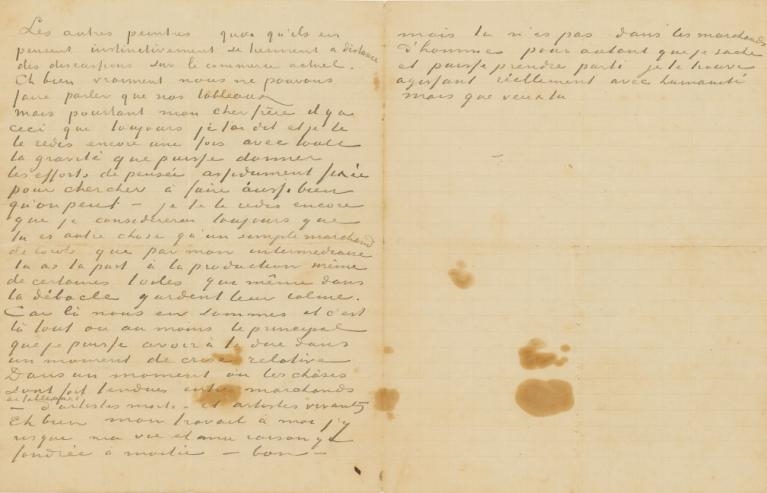 Les autres peintres quoi qu'ils en
pensent instinctivement se tiennent a distance
des discussions sur le commerce actuel.
Eh bien vraiment nous ne pouvons
faire parler que nos tableaux
mais pourtant mon cher frère il y a
ceci que toujours je t'ai dit et je te
le redis encore une fois avec toute
la gravité que puisse donner
les efforts de pensée assidument fixée
pour chercher à faire aussi bien
qu'on peut – je te le redis encore
que je considererai toujours que
tu es autre chose qu'un simple marchand
de Corots que par mon intermediaire
tu as ta part à la production même
de certaines toiles qui même dans
la débacle gardent leur calme.
Car là nous en sommes et c'est
là tout ou au moins le principal
que je puisse avoir à te dire dans
un moment de crise relative
Dans un moment où les choses
sont fort tendues entre marchands
de tableaux
– d'artistes morts – et artistes vivants
Eh bien mon travail à moi j'y
risque ma vie et ma raison y a
fondrée à moitié – bon –
mais tu n'es pas dans les marchands
d'hommes pour autant que je sache
et puisse prendre parti je te trouve
agissant réellement avec humanité
mais que veux tu